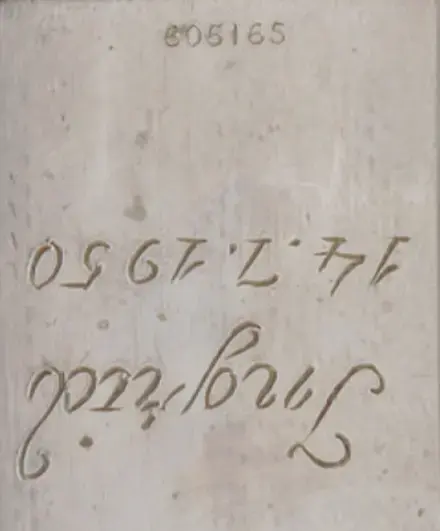 605165
Ingrid
14.7.1950